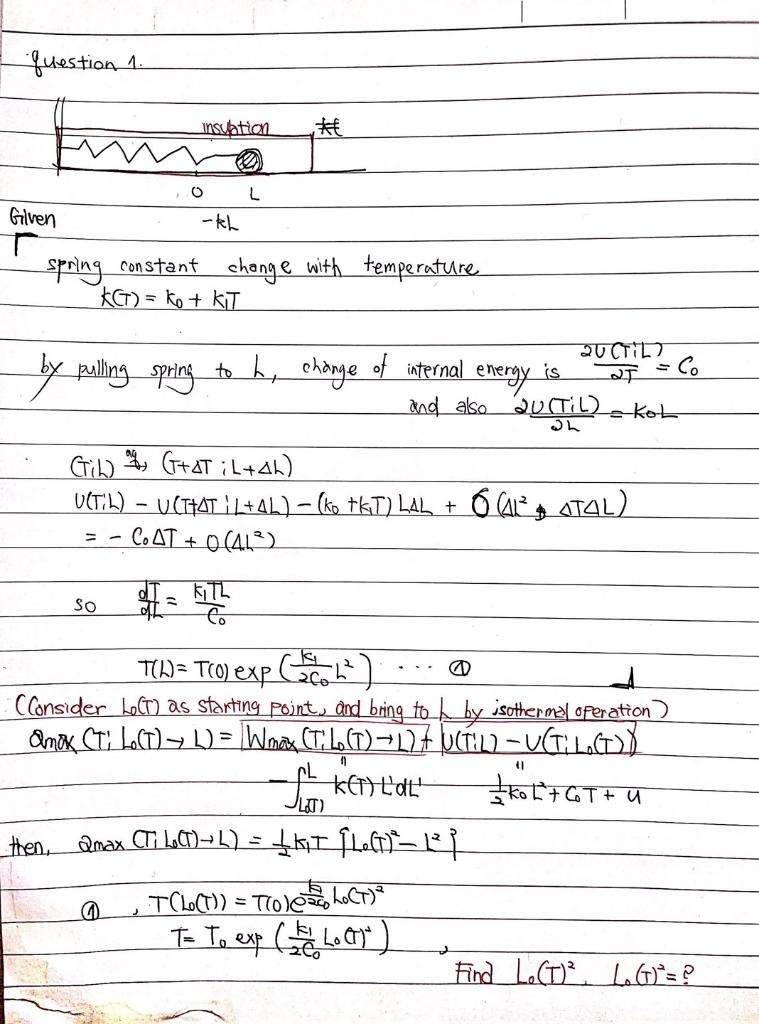 question 1.
insuption
0 L
-kL
Given
spring constant change with temperature
k(T) = k₀ + k₁T
by pulling spring to L, change of internal energy is ∂U(T;L)/∂T = C₀
and also ∂U(T;L)/∂L = k₀L
(T;L) aq→ (T+ΔT ; L+ΔL)
U(T;L) - U(T+ΔT ; L+ΔL) - (k₀ + k₁T) LΔL + O(ΔL², ΔTΔL)
= - C₀ΔT + O(ΔL²)
so dT/dL = k₁TL/C₀
T(L) = T(0) exp(k₁/2C₀ L²) ... ①
(Consider L₀(T) as starting point, and bring to L by isothermal operation)
Qmax (T; L₀(T) → L) = Wmax (T; L₀(T) → L) + U(T;L) - U(T; L₀(T))
- ∫_{L₀(T)}^{L} k(T) L'dL' ½k₀L² + C₀T + u
then, Qmax (T; L₀(T) → L) = ½k₁T {L₀(T)² - L²}
① , T(L₀(T)) = T(0)e^{k₁/2C₀ L₀(T)²}
T = T₀ exp(k₁/2C₀ L₀(T)²) ,
Find L₀(T)². L₀(T)² = ?